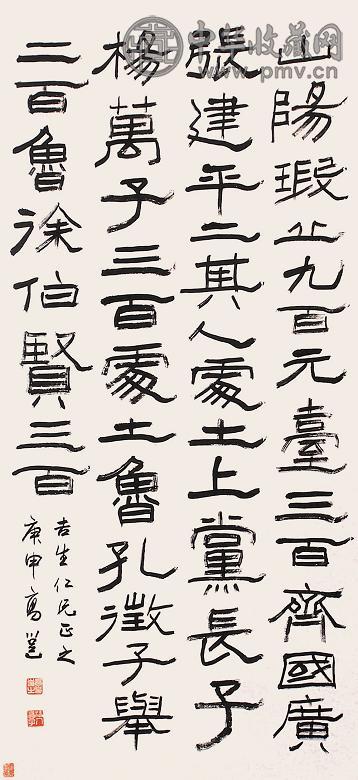 中华收藏网
www.pmv.cn
山陽瑕丘九百元臺三百齊國廣
張建平二其人處士上黨長子
楊萬子三百處士魯孔徵子舉
二百魯徐伯賢三百
吉生仁兄正之
庚申高邕